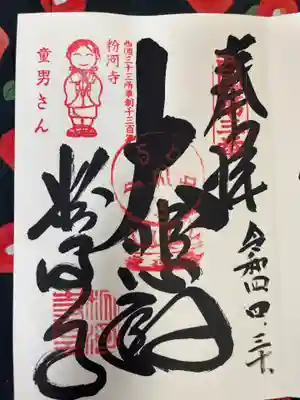 奉拝
令和四、四、三十、
大悲殿
西国三十三所草創千三百年
粉河寺
粉河寺
童男さん